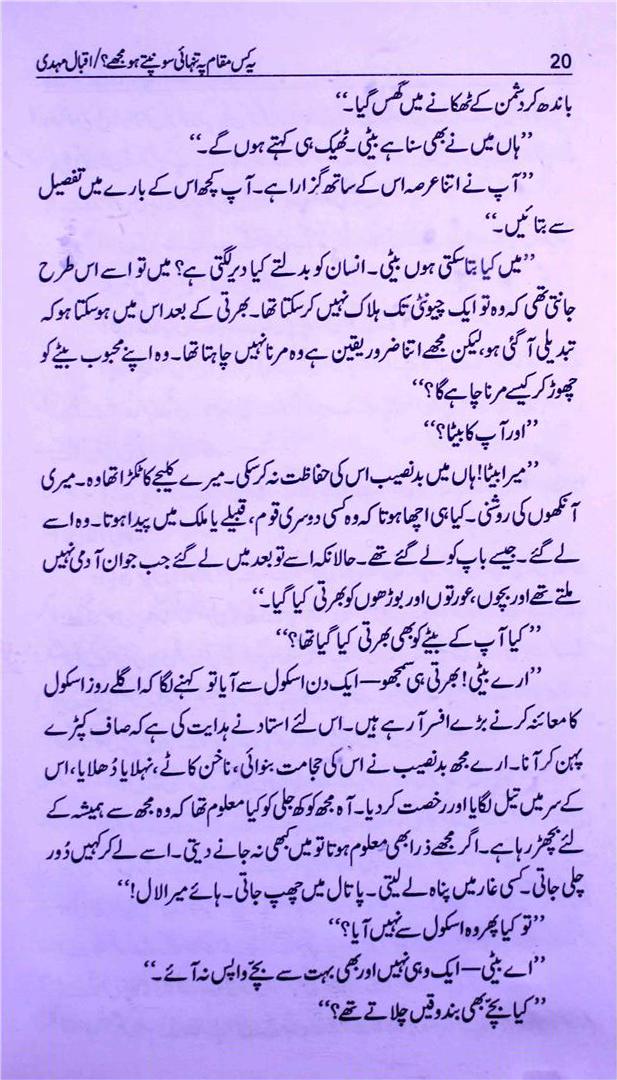 20
یہ کس مقام پہ تنہائی سونپتے ہو مجھے؟/اقبال مہدی
باندھ کر دشمن کے ٹھکانے میں گھس گیا۔‘‘
’’ہاں میں نے بھی سنا ہے بیٹی۔ ٹھیک ہی کہتے ہوں گے۔‘‘
’’آپ نے اتنا عرصہ اس کے ساتھ گزارا ہے۔ آپ کچھ اس کے بارے میں تفصیل
سے بتائیں۔‘‘
’’میں کیا بتا سکتی ہوں بیٹی۔ انسان کو بدلتے کیا دیر لگتی ہے؟ میں تو اسے اس طرح
جانتی تھی کہ وہ تو ایک چیونٹی تک ہلاک نہیں کر سکتا تھا۔ بھرتی کے بعد اس میں ہو سکتا ہو کہ
تبدیلی آ گئی ہو، لیکن مجھے اتنا ضرور یقین ہے وہ مرنا نہیں چاہتا تھا۔ وہ اپنے محبوب بیٹے کو
چھوڑ کر کیسے مرنا چاہے گا؟‘‘
’’اور آپ کا بیٹا؟‘‘
’’میرا بیٹا! ہاں میں بدنصیب اس کی حفاظت نہ کر سکی۔ میرے کلیجے کا ٹکڑا تھا وہ۔ میری
آنکھوں کی روشنی۔ کیا ہی اچھا ہوتا کہ وہ کسی دوسری قوم، قبیلے یا ملک میں پیدا ہوتا۔ وہ اسے
لے گئے۔ جیسے باپ کو لے گئے تھے۔ حالانکہ اسے تو بعد میں لے گئے جب جوان آدمی نہیں
ملتے تھے اور بچوں، عورتوں اور بوڑھوں کو بھرتی کیا گیا۔‘‘
’’کیا آپ کے بیٹے کو بھی بھرتی کیا گیا تھا؟‘‘
’’ارے بیٹی! بھرتی ہی سمجھو — ایک دن اسکول سے آیا تو کہنے لگا کہ اگلے روز اسکول
کا معائنہ کرنے بڑے افسر آ رہے ہیں۔ اس لئے استاد نے ہدایت کی ہے کہ صاف کپڑے
پہن کر آنا۔ ارے مجھ بدنصیب نے اس کی حجامت بنوائی، ناخن کاٹے، نہلایا دُھلایا، اس
کے سر میں تیل لگایا اور رخصت کر دیا۔ آہ مجھ کوکھ جلی کو کیا معلوم تھا کہ وہ مجھ سے ہمیشہ کے
لئے بچھڑ رہا ہے۔ اگر مجھے ذرا بھی معلوم ہوتا تو میں کبھی نہ جانے دیتی۔ اسے لے کر کہیں دُور
چلی جاتی۔ کسی غار میں پناہ لے لیتی۔ پاتال میں چھپ جاتی۔ ہائے میرا لال!‘‘
’’تو کیا پھر وہ اسکول سے نہیں آیا؟‘‘
’’اے بیٹی — ایک وہی نہیں اور بھی بہت سے بچّے واپس نہ آئے۔‘‘
’’کیا بچّے بھی بندوقیں چلاتے تھے؟‘‘